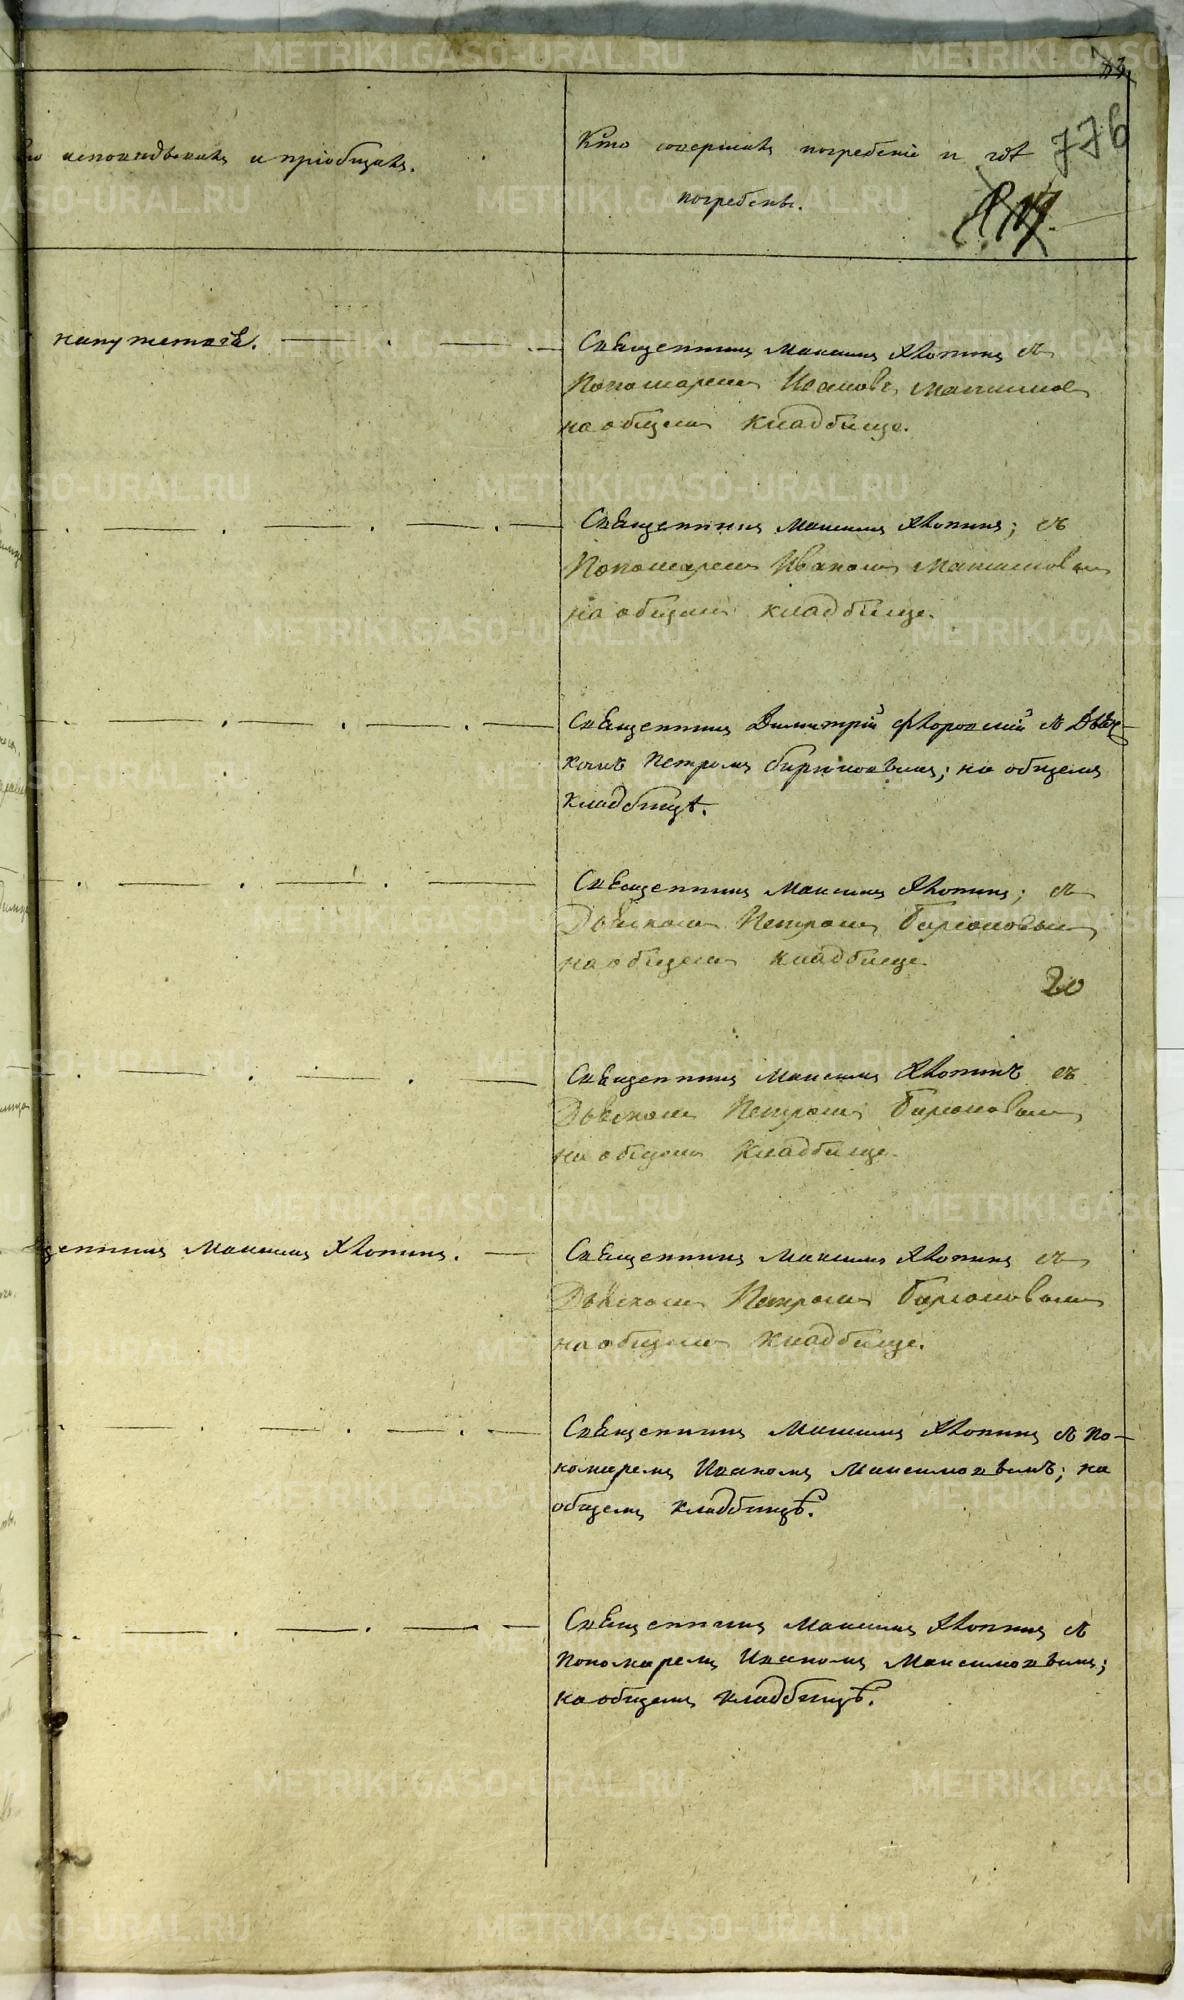 Кто совершалъ погребеніе и гдѣ
исповѣдывалъ и пріобщалъ.
776
погребены.
Священникъ Максимъ Хлопинъ съ
Пономаремъ
на общемъ кладбище.
Священникъ Максимъ Хлопинъ; съ
Пономаремъ Иваномъ Максимовымъ
на общемъ кладбище.
Священникъ Димитрій Флоровскій съ Дьяч-
комъ Петромъ Бирюковымъ; на общемъ
кладбищѣ.
Священникъ Максимъ Хлопинъ; съ
Дьячкомъ Петромъ Бирюковымъ
на общемъ кладбище.
20
Священникъ Максимъ Хлопинъ съ
Дьячкомъ Петромъ Бирюковымъ
на общемъ кладбище.
щенникъ Максимъ Хлопинъ.
Священникъ Максимъ Хлопинъ съ
Дьячкомъ Петромъ Бирюковымъ
на общемъ кладбище.
Священникъ Максимъ Хлопинъ съ По-
номаремъ Иваномъ Максимовымъ; на
общемъ кладбищѣ.
Священникъ Максимъ Хлопинъ съ
Пономаремъ Иваномъ Максимовымъ;
на общемъ кладбищѣ.
METRIKI.GASO-URAL.RU